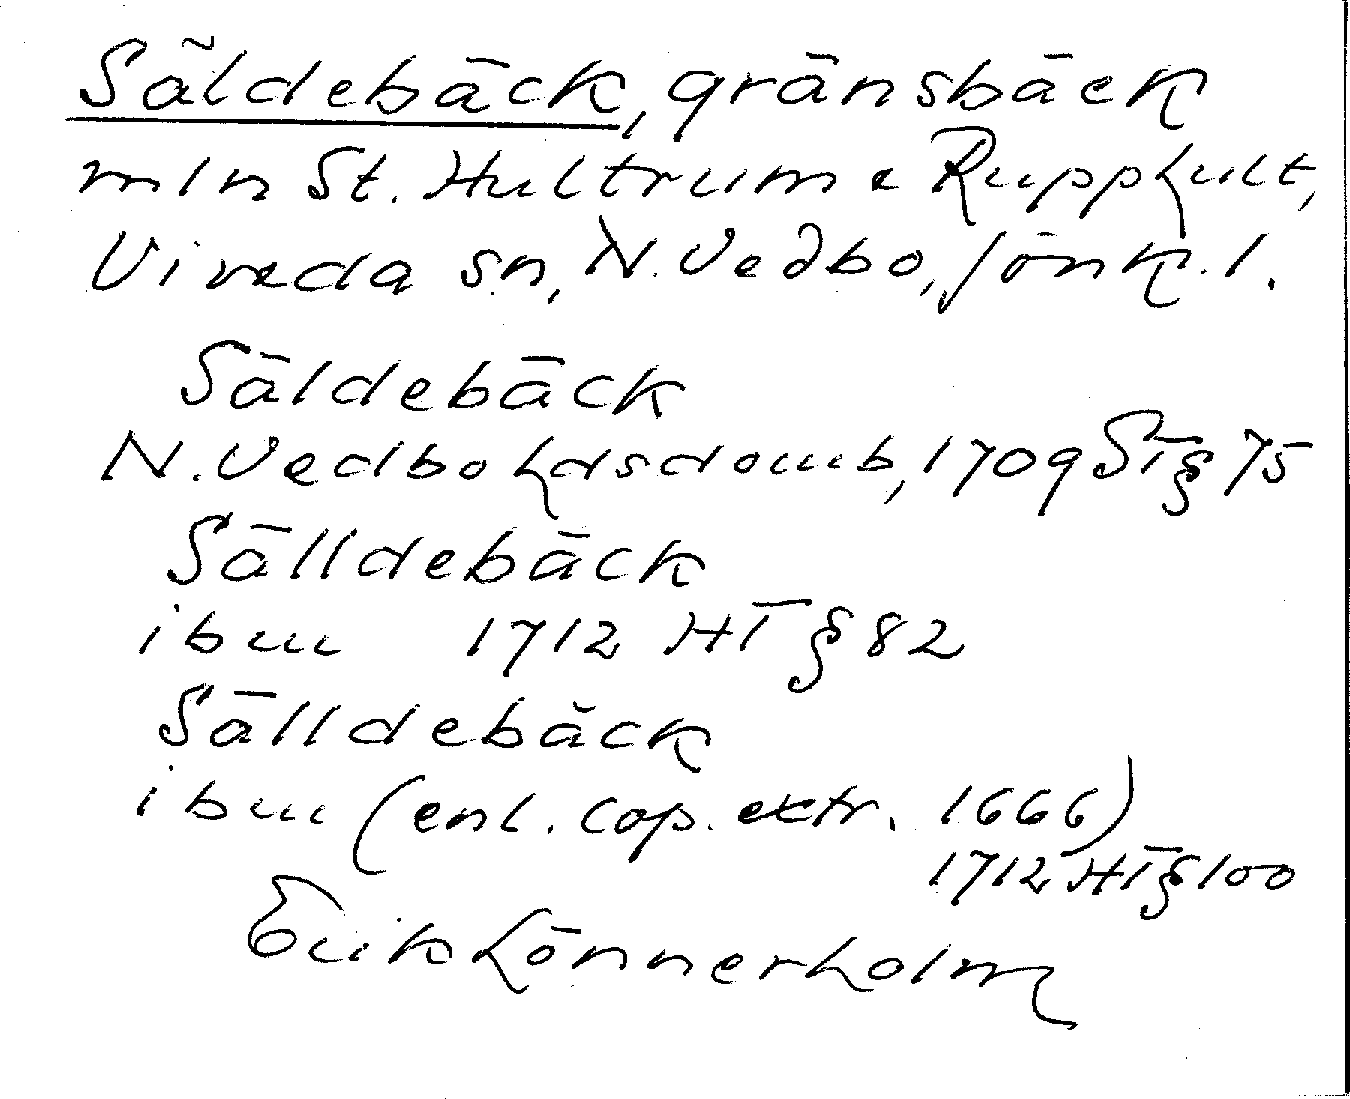 Säldebäck, gränsbäck
mln St. Hultrum o Rupphult,
Vireda sn, N. Vedbo, Jönk. l.
Säldebäck
N. Vedbo hdsdomb, 1709 ST § 75
Sälldebäck
ibm 1712 HT § 82
Sälldebäck
ibm (enl. cop. extr. 1666)
1712 HT § 100
Erik Lönnerholm